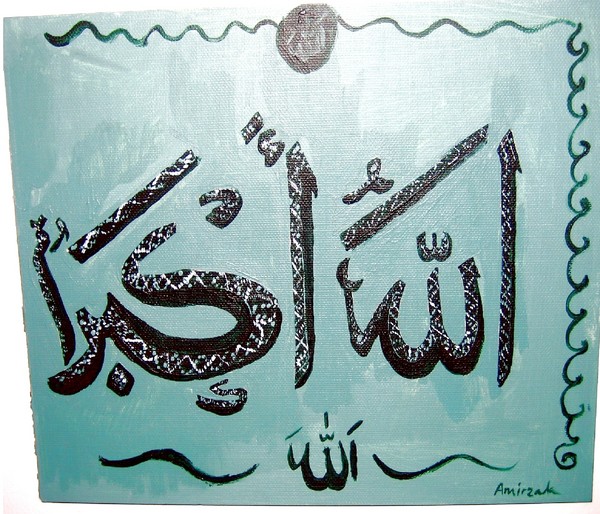 الله أكبر
الله
Amirzak